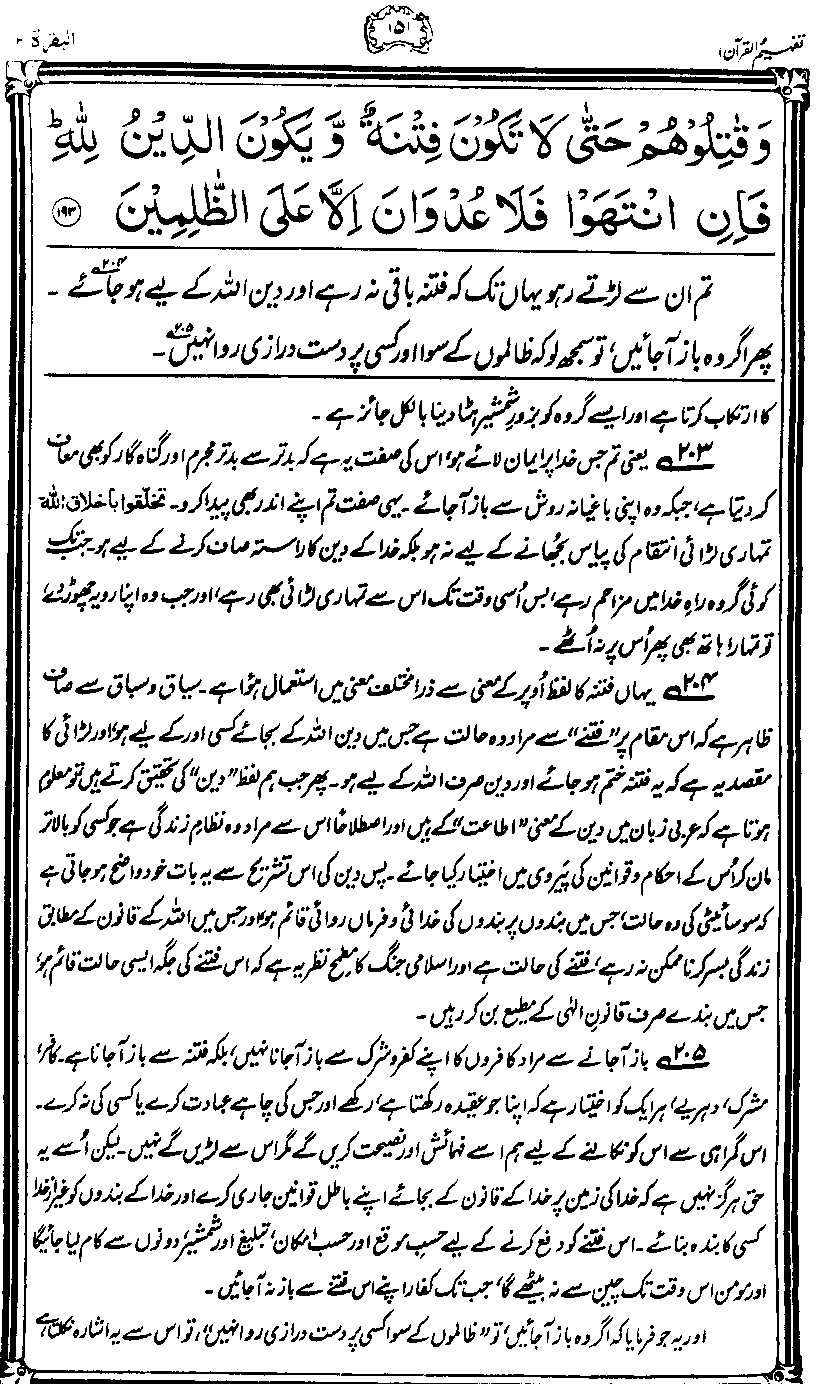 تفہیم القرآن ۱
۱۵۱
البقرۃ ۲
وَقٰتِلُوْهُمْ حَتّٰى لَا تَكُوْنَ فِتْنَةٌ وَّيَكُوْنَ الدِّيْنُ لِلّٰهِ ؕ
فَاِنِ انْتَهَوْا فَلَا عُدْوَانَ اِلَّا عَلَى الظّٰلِمِيْنَ ﴿۱۹۳﴾
تم ان سے لڑتے رہو یہاں تک کہ فتنہ باقی نہ رہے اور دین اللہ کے لیے ہو جائے۲۰۴۔
پھر اگر وہ باز آ جائیں، تو سمجھ لو کہ ظالموں کے سوا اور کسی پر دست درازی روا نہیں۲۰۵۔
کا ارتکاب کرتا ہے اور ایسے گروہ کو بزورِ شمشیر ہٹا دینا بالکل جائز ہے۔
۲۰۳ یعنی تم جس خدا پر ایمان لائے ہو، اس کی صفت یہ ہے کہ بدتر سے بدتر مجرم اور گناہ گار کو بھی معاف
کر دیتا ہے، جبکہ وہ اپنی باغیانہ روش سے باز آ جائے۔ یہی صفت تم اپنے اندر بھی پیدا کرو۔ تخلّقوا باخلاق اللہ
تمہاری لڑائی انتقام کی پیاس بجھانے کے لیے نہ ہو بلکہ خدا کے دین کا راستہ صاف کرنے کے لیے ہو۔ جب تک
کوئی گروہ راہِ خدا میں مزاحم رہے، بس اُسی وقت تک اس سے تمہاری لڑائی بھی رہے، اور جب وہ اپنا رویہ چھوڑ دے،
تو تمہارا ہاتھ بھی پھر اُس پر نہ اُٹھے۔
۲۰۴ یہاں فتنہ کا لفظ اُوپر کے معنی سے ذرا مختلف معنی میں استعمال ہوا ہے۔ سیاق و سباق سے صاف
ظاہر ہے کہ اس مقام پر ”فتنے“ سے مراد وہ حالت ہے جس میں دین اللہ کے بجائے کسی اور کے لیے ہو، اور لڑائی کا
مقصد یہ ہے کہ یہ فتنہ ختم ہو جائے اور دین صرف اللہ کے لیے ہو۔ پھر جب ہم لفظ ”دین“ کی تحقیق کرتے ہیں تو معلوم
ہوتا ہے کہ عربی زبان میں دین کے معنی ”اطاعت“ کے ہیں اور اصطلاحًا اس سے مراد وہ نظامِ زندگی ہے جو کسی کو بالاتر
مان کر اُس کے احکام و قوانین کی پیروی میں اختیار کیا جائے۔ پس دین کی اس تشریح سے یہ بات خود واضح ہو جاتی ہے
کہ سوسائیٹی کی وہ حالت، جس میں بندوں پر بندوں کی خدائی و فرماں روائی قائم ہو، اور جس میں اللہ کے قانون کے مطابق
زندگی بسر کرنا ممکن نہ رہے، فتنے کی حالت ہے اور اسلامی جنگ کا مطمحِ نظر یہ ہے کہ اس فتنے کی جگہ ایسی حالت قائم ہو،
جس میں بندے صرف قانونِ الٰہی کے مطیع بن کر رہیں۔
۲۰۵ باز آ جانے سے مراد کافروں کا اپنے کفر و شرک سے باز آ جانا نہیں، بلکہ فتنہ سے باز آ جانا ہے۔ کافر،
مشرک، دہریے، ہر ایک کو اختیار ہے کہ اپنا جو عقیدہ رکھتا ہے، رکھے اور جس کی چاہے عبادت کرے یا کسی کی نہ کرے۔
اس گمراہی سے اس کو نکالنے کے لیے ہم اسے فہمائش اور نصیحت کریں گے مگر اس سے لڑیں گے نہیں۔ لیکن اُسے یہ
حق ہرگز نہیں ہے کہ خدا کی زمین پر خدا کے قانون کے بجائے اپنے باطل قوانین جاری کرے اور خدا کے بندوں کو غیر از خدا
کسی کا بندہ بنائے۔ اس فتنے کو دفع کرنے کے لیے حسبِ موقع اور حسبِ امکان، تبلیغ اور شمشیر، دونوں سے کام لیا جائیگا
اور مومن اس وقت تک چین سے نہ بیٹھے گا، جب تک کفار اپنے اس فتنے سے باز نہ آ جائیں۔
اور یہ جو فرمایا کہ اگر وہ باز آ جائیں، تو ”ظالموں کے سوا کسی پر دست درازی روا نہیں“، تو اس سے یہ اشارہ نکلتا ہے